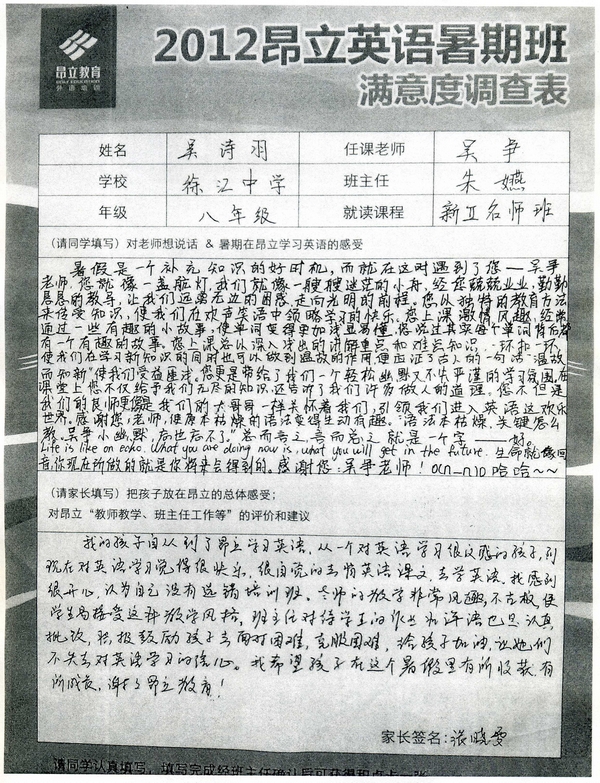 昂立教育
外语培训
2012昂立英语暑期班
满意度调查表
姓名 吴诗羽 任课老师 吴争
学校 徐汇中学 班主任 朱嬿
年级 八年级 就读课程 新卫名师班
(请同学填写)对老师想说话 & 暑期在昂立学习英语的感受
暑假是一个补充知识的好时机,而就在这时遇到了您——吴争
老师,您就像一盏航灯,我们就像一艘艘迷茫的小舟,经您兢兢业业,勤勤
恳恳的教导,让我们远离在边的困惑,走向光明的前程。您以独特的教育方法
来传受知识,使我们在欢声笑语中领略学习的快乐。您上课激情风趣,经常
通过一些有趣的小故事,使单词变得更加浅显易懂,搭说过其实每个单词背后都
有一个有趣的故事。您上课总以深入浅出的讲解重点和难点知识,一环扣一环,
使我们在学习新知识的同时也可以做到温故的作用,便应证了古人的一句话"温故
而知新"使我们受益匪浅。您更是带给了我们一个轻松幽默又不失严谨的学习氛围,在
课堂上您不仅给予我们无尽的知识,还告诉了我们许多做人的道理,您不但是
我们的良师,更像是我们的大哥哥一样关怀着我们,引领我们进入英语这欢乐
世界。感谢您,老师,使原本枯燥的语法变得生动有趣。"语法本枯燥,关键怎么
教。吴争小幽默,后世忘不了。"总而言之,言而总之就是一个字——好。
Life is like an echo. What you are doing now is, what you will get in the future. 生命就像回
音,你现在所做的就是你将来点得到的。感谢您:吴争老师!O(∩_∩)O哈哈~~
(请家长填写)把孩子放在昂立的总体感受;
对昂立"教师教学、班主任工作等"的评价和建议
我的孩子自从到了昂立学习英语,从一个对英语学习很反感的孩子,到
现在对英语学习觉得很快乐,很自觉的去背英语课文,去学英语,我感到
很开心,认为自己没有选错培训班。老师的教学非常风趣,不古板,使
学生易接受这种教学风格,班主任对待学生的作业和评语也且认真
批改,积极鼓励孩子去面对困难,克服困难,给孩子加油,让她们
不失去对英语学习的信心。我希望孩子在这个暑假里有所收获,有
所成长,谢谢昂立教育!
家长签名:张晓雯
请同学认真填写,填写完成经班主任确认后可获得积点卡一张